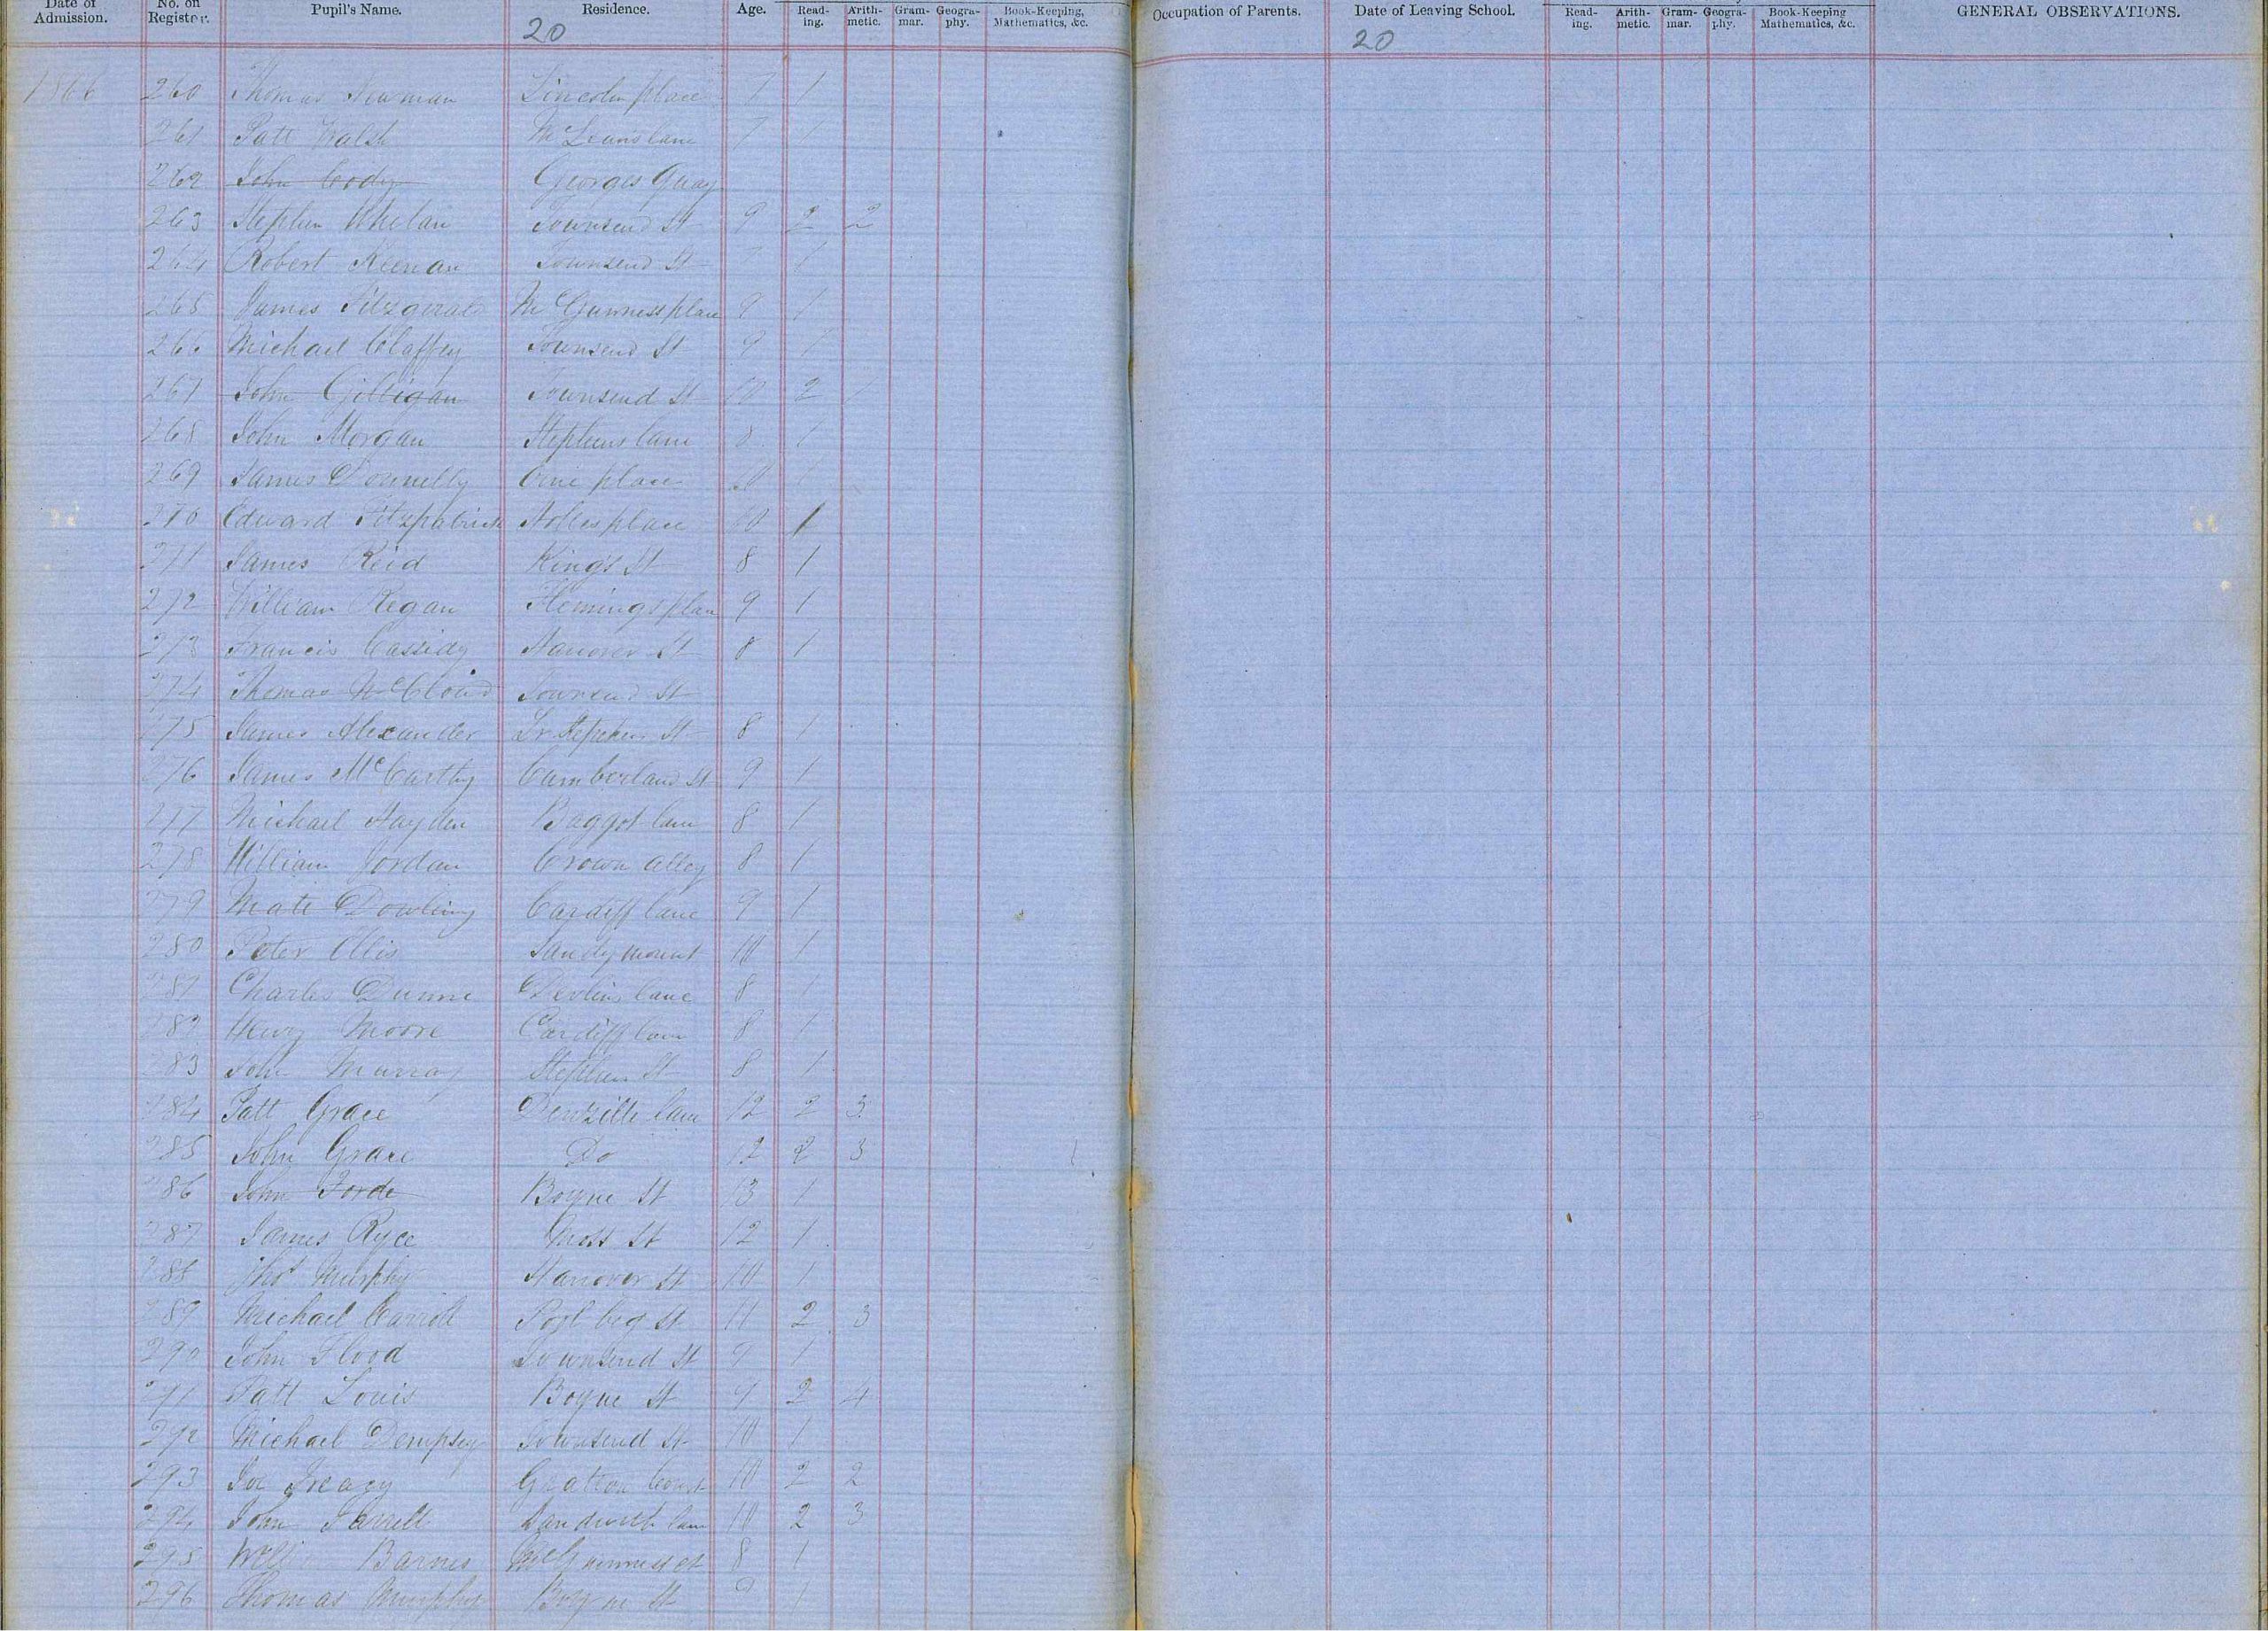 Date of Admission. No. on Register. Pupil's Name. Residence. Age. Read-ing. Arith-metic. Gram-mar. Geogra-phy. Book-Keeping, Mathematics, &c. Occupation of Parents. Date of Leaving School. Read-ing. Arith-metic. Gram-mar. Geogra-phy. Book-Keeping Mathematics, &c. GENERAL OBSERVATIONS.
20 20
1866 260 Thomas Newman Lincoln place 7 1
261 Patt Walsh McLeans lane 7 1
262 John Cody Georges Quay
263 Stephen Whelan Townsend St 9 2 2
264 Robert Keenan Townsend St 7 1
265 James Fitzgerald McGunness place 9 1
266 Michael Claffey Townsend St 9 1
267 John Gilligan Townsend St 10 2 1
268 John Morgan Stephens lane 8 1
269 James Donnelly place 1
270 Edward Fitzpatrick Holles place 10 1
271 James Reid King's St 8 1
272 William Regan Flemings place 9 1
273 Francis Cassidy Hanover St 8 1
274 Thomas McCloud Townsend St
275 James Alexander Lr Stephen St 8 1
276 James McCarthy Cumberland St 9 1
277 Michael Hayden Baggot lane 8 1
278 William Jordan Crown alley 8 1
279 Matt Dowling Cardiff lane 9 1
280 Peter Ellis Sandymount 10 1
281 Charles Dunne Devlins lane 8 1
282 Henry Moore Cardiff lane 8 1
283 John Murray Stephen St 8 1
284 Patt Grace Denzille lane 12 2 3
285 John Grace Do 12 2 3
286 John Forde Boyne St 13 1
287 James Ryce Moss St 12 1
288 Thos Murphy Hanover St 10 1
289 Michael Carroll Poolbeg St 11 2 3
290 John Flood Townsend St 9 1
291 Patt Louis Boyne St 9 2 4
292 Michael Dempsey Townsend St 10 1
293 Joe Treacy Gratton Court 10 2 2
294 John Farrell Sandwith lane 10 2 3
295 Will Barnes McGuinness ct 8 1
296 Thomas Murphy Boyne St 9 1